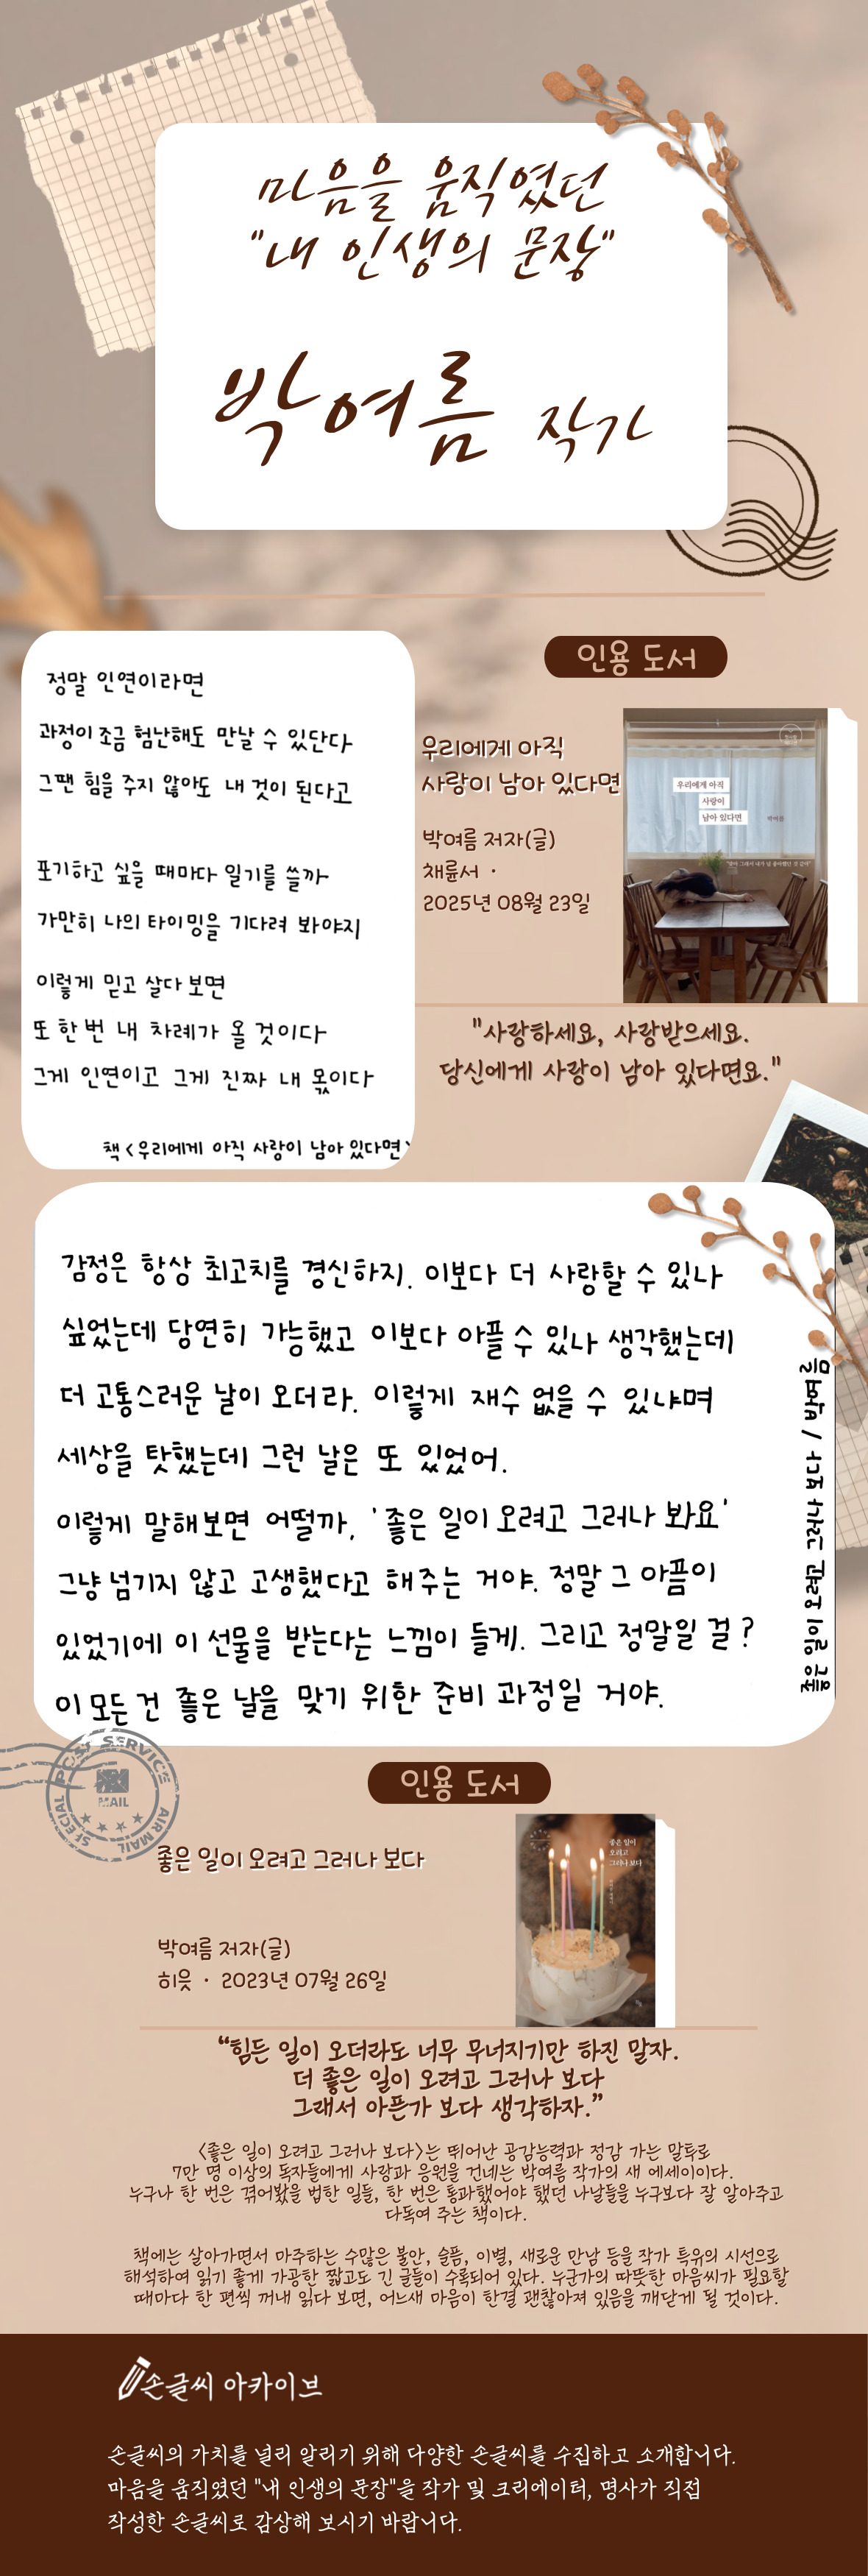 마음을 움직였던
"내 인생의 문장"
박여름 작가
정말 인연이라면
과정이 조금 험난해도 만날 수 있단다
그땐 힘을 주지 않아도 내 것이 된다고
포기하고 싶을 때마다 일기를 쓸까
가만히 나의 타이밍을 기다려 봐야지
이렇게 믿고 살다 보면
또 한번 내 차례가 올 것이다
그게 인연이고 그게 진짜 내 몫이다
책 <우리에게 아직 사랑이 남아 있다면>
인용 도서
우리에게 아직
사랑이 남아 있다면
박여름 저자(글)
채륜서 ·
2025년 08월 23일
우리에게 아직
사랑이
남아 있다면
박여름
"사랑하세요, 사랑받으세요.
당신에게 사랑이 남아 있다면요."
감정은 항상 최고치를 경신하지. 이보다 더 사랑할 수 있나
싶었는데 당연히 가능했고 이보다 아플 수 있나 생각했는데
더 고통스러운 날이 오더라. 이렇게 재수 없을 수 있냐며
세상을 탓했는데 그런 날은 또 있었어.
이렇게 말해보면 어떨까, '좋은 일이 오려고 그러나 봐요'
그냥 넘기지 않고 고생했다고 해주는 거야. 정말 그 아픔이
있었기에 이 선물을 받는다는 느낌이 들게. 그리고 정말일 걸?
이 모든 건 좋은 날을 맞기 위한 준비 과정일 거야.
좋은 일이 오려고 그러나 보다 / 박여름
POST SERVICE
MAIL
SPECIAL
AIR MAIL
인용 도서
좋은 일이 오려고 그러나 보다
박여름 저자(글)
히읏 · 2023년 07월 26일
좋은 일이
오려고
그러나 보다
“힘든 일이 오더라도 너무 무너지기만 하진 말자.
더 좋은 일이 오려고 그러나 보다
그래서 아픈가 보다 생각하자.”
<좋은 일이 오려고 그러나 보다>는 뛰어난 공감능력과 정감 가는 말투로
7만 명 이상의 독자들에게 사랑과 응원을 건네는 박여름 작가의 새 에세이이다.
누구나 한 번은 겪어봤을 법한 일들, 한 번은 통과했어야 했던 나날들을 누구보다 잘 알아주고
다독여 주는 책이다.
책에는 살아가면서 마주하는 수많은 불안, 슬픔, 이별, 새로운 만남 등을 작가 특유의 시선으로
해석하여 읽기 좋게 가공한 짧고도 긴 글들이 수록되어 있다. 누군가의 따뜻한 마음씨가 필요할
때마다 한 편씩 꺼내 읽다 보면, 어느새 마음이 한결 괜찮아져 있음을 깨닫게 될 것이다.
손글씨 아카이브
손글씨의 가치를 널리 알리기 위해 다양한 손글씨를 수집하고 소개합니다.
마음을 움직였던 "내 인생의 문장"을 작가 및 크리에이터, 명사가 직접
작성한 손글씨로 감상해 보시기 바랍니다.